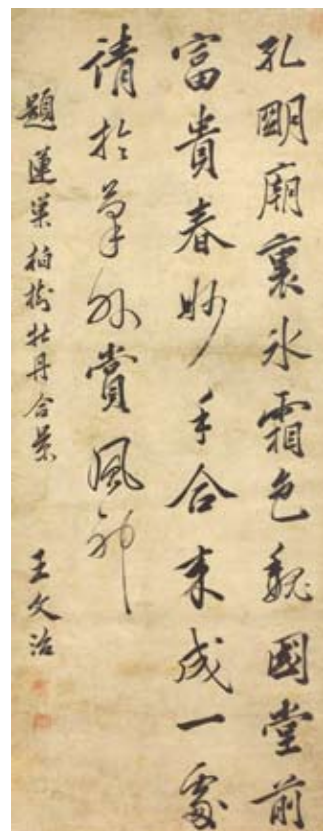 孔明廟裏氷霜色魏國堂前
富貴春妙手合来成一處
請於筆外賞風神
題蓮巢柏樹牡丹合景
王文治